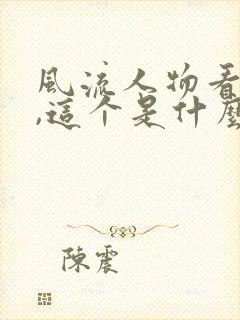 風流人物看
,這个是什麼
陳震